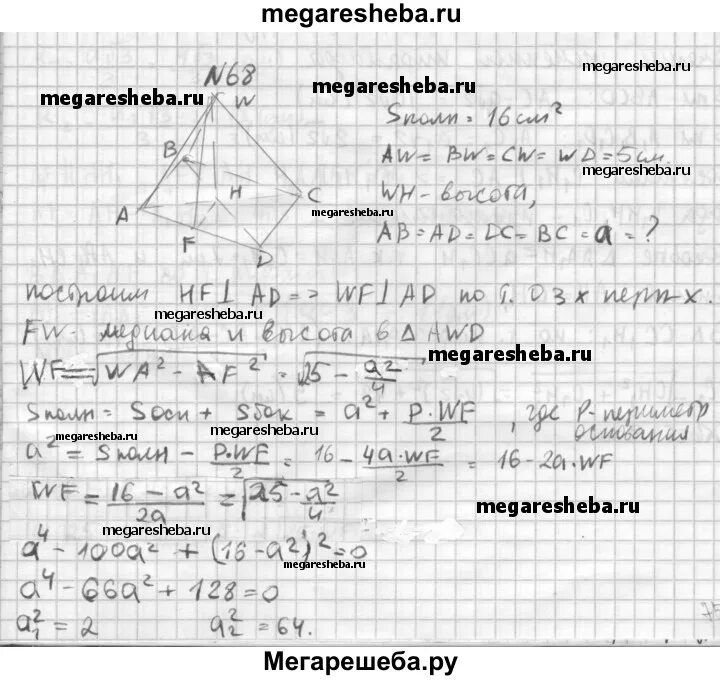 megaresheba.ru
N68
megaresheba.ru
megaresheba.ru
megaresheba.ru
W
B
A
H
C
F
D
megaresheba.ru
Sполн = 16 см²
AW = BW = CW = WD = 5 см.
megaresheba.ru
WH - высота,
AB = AD = DC = BC = a = ?
построим HF ⊥ AD => WF ⊥ AD по т. О 3х перп-х.
megaresheba.ru
FW - медиана и высота в △ AWD
megaresheba.ru
WF = √(WA² - AF²) = √(25 - a²/4)
Sполн = Sосн + Sбок = a² + P·WF/2, где P - периметр основания
megaresheba.ru
a² = Sполн - P·WF/2 = 16 - 4a·WF/2 = 16 - 2a·WF
megaresheba.ru
WF = (16 - a²)/2a = √(25 - a²/4)
megaresheba.ru
megaresheba.ru
a⁴ - 100a² + (16 - a²)² = 0
megaresheba.ru
a⁴ - 66a² + 128 = 0
a₁² = 2 a₂² = 64.
Мегарешеба.ру